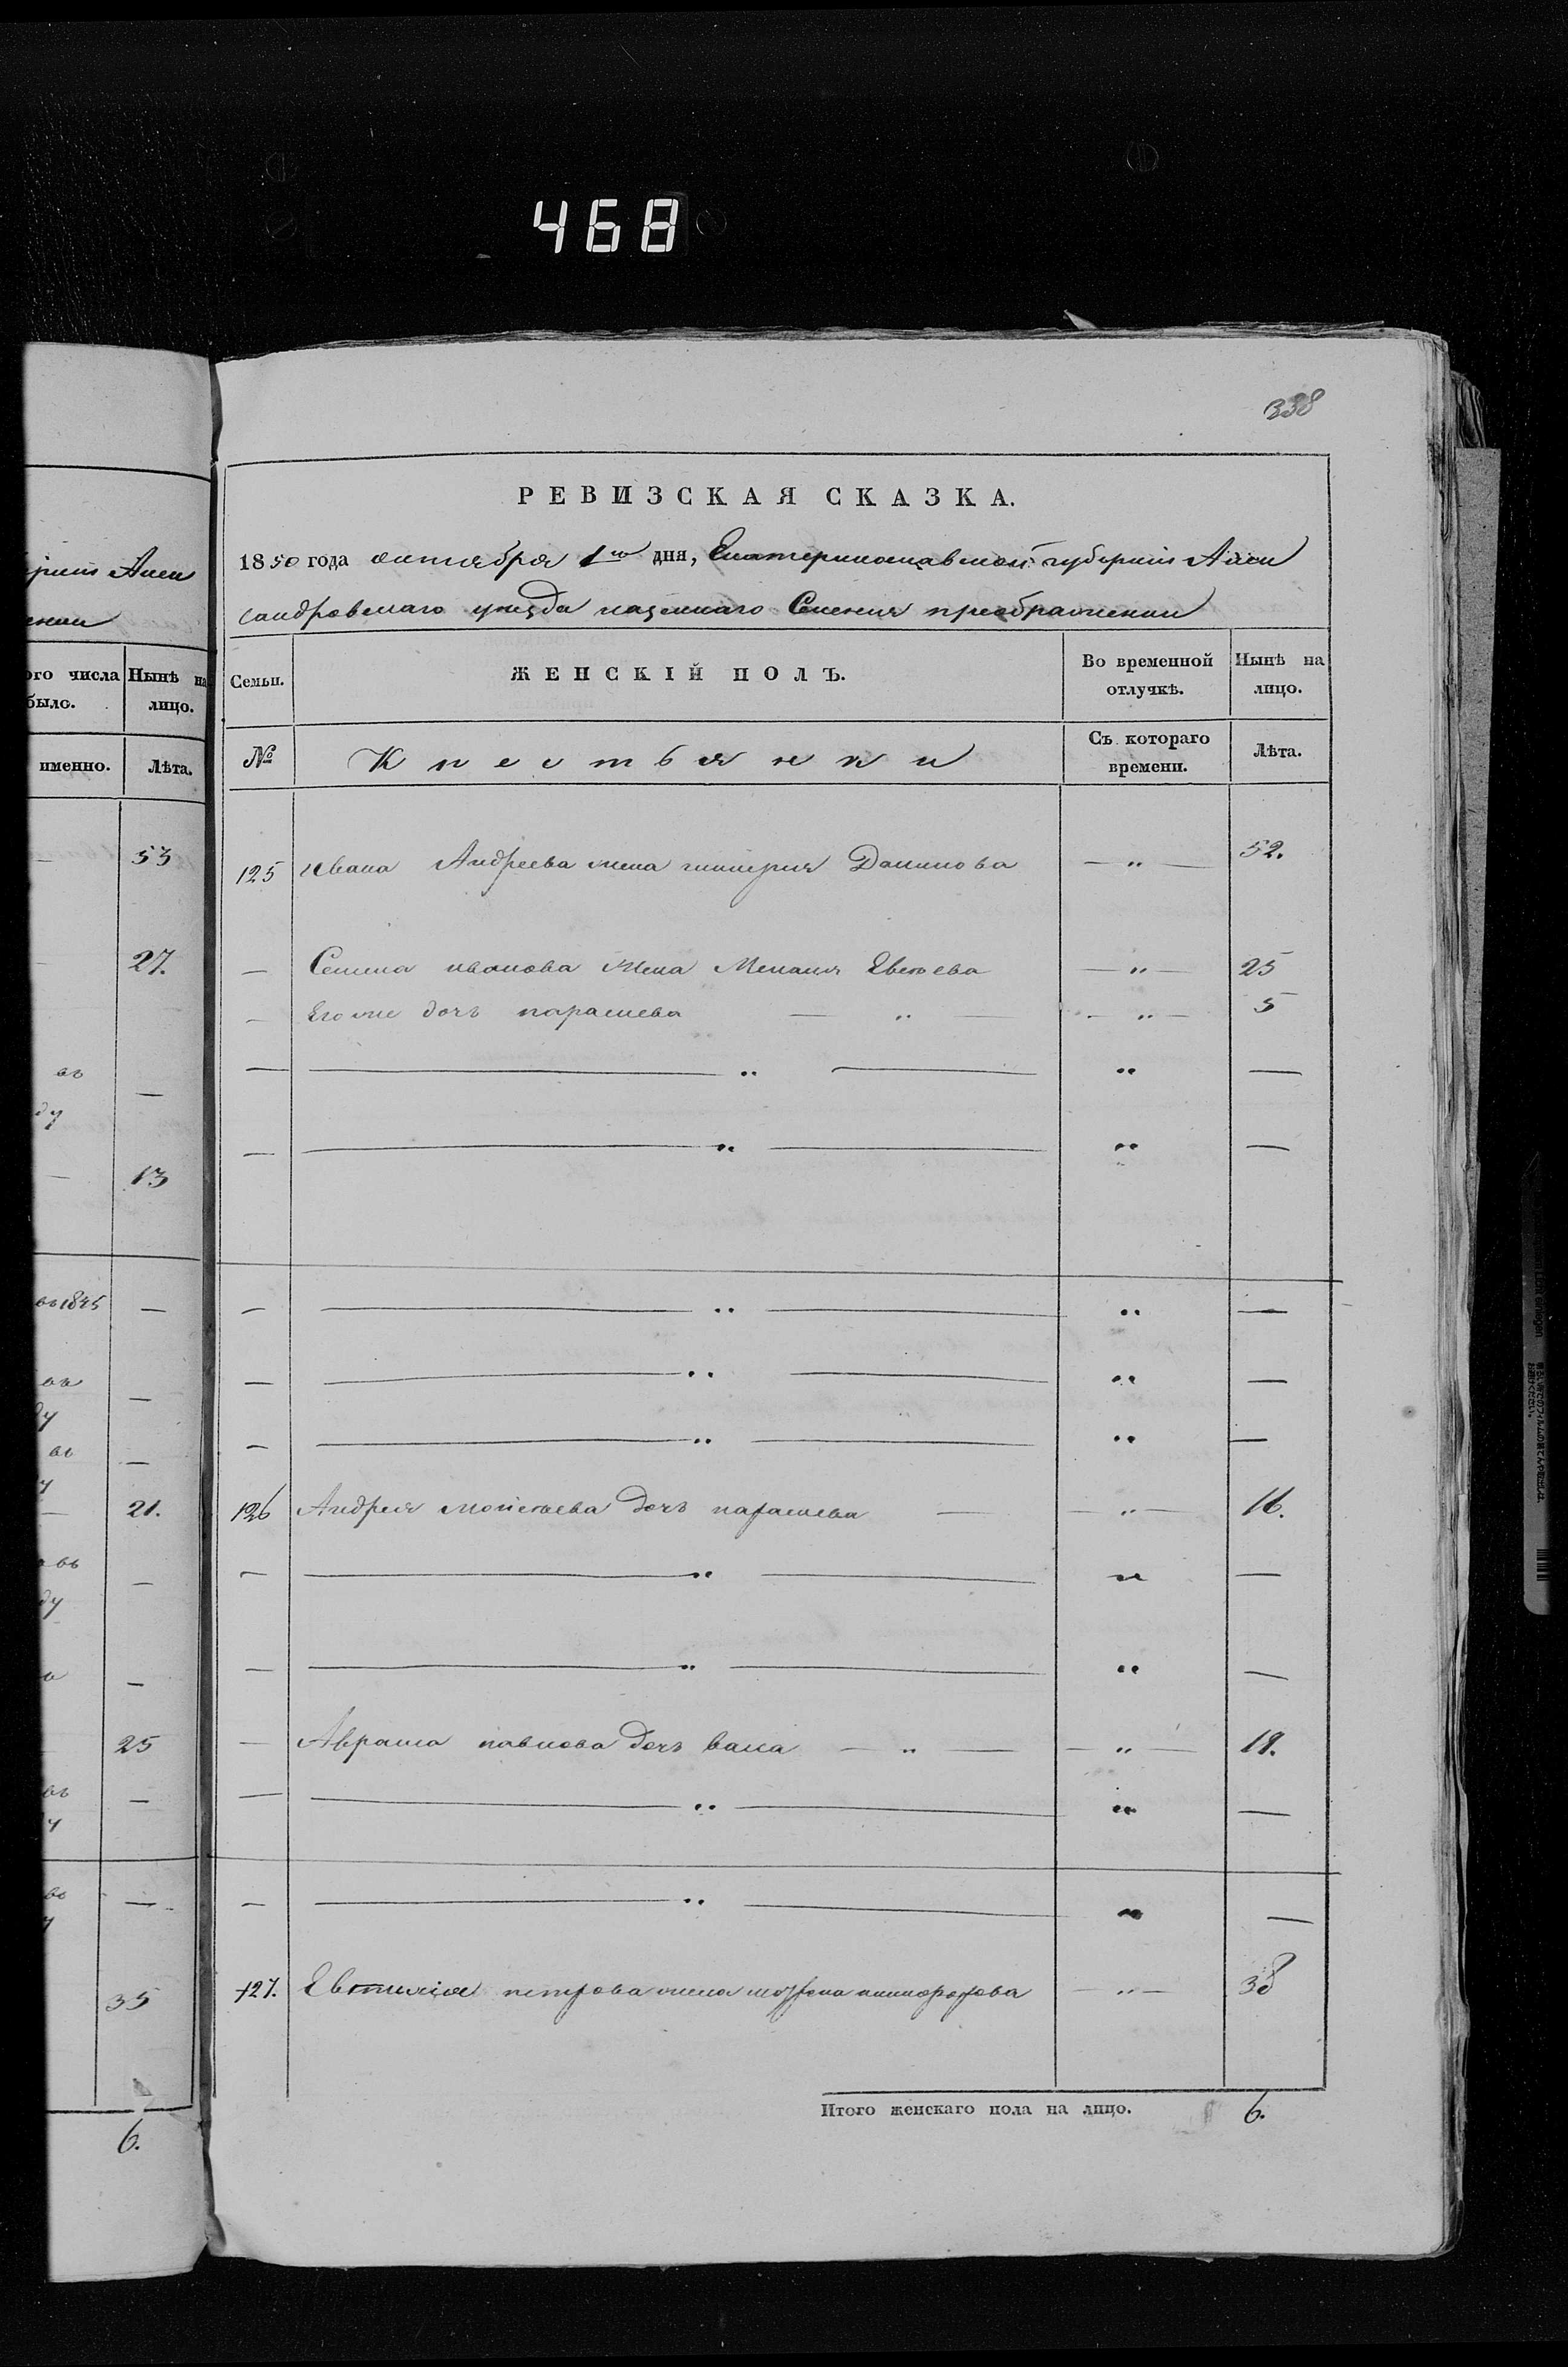 468
338
РЕВИЗСКАЯ СКАЗКА.
1850 года октября 1го дня, Екатеринославской губернiи Алек
сандровскаго уезда казеннаго Селения преображенки
Семьи. ЖЕНСКIЙ ПОЛЪ. Во временной отлучкѣ. Нынѣ на лицо.
№ Крестьянки Съ котораго времени. Лѣта.
125 Ивана Андреева жена Данилова — " — 52.
— Семена иванова жена Мелания Евсеева — " — 25
— Его же дочь парасковa — " — — " — 5
— — " — " —
— — " — " —
— — " — " —
— — " — " —
— — " — " —
126 Андрея мойсеева дочь — — " — 16.
— — " — " —
— — " — " —
— Абрама павлова дочь васа — " — — " — 18.
— — " — " —
— — " — " —
127. петрова жена никифорова — " — 38
Итого женскаго пола на лицо. 6.
рнiи Алек
енки
ого числа было. Нынѣ на лицо.
именно. Лѣта.
— 53
— 27.
въ
ду —
— 13
въ 1845 —
въ —
ду
въ —
у
— 21.
въ —
ду
а —
25
въ —
у
въ —
у
35
6.